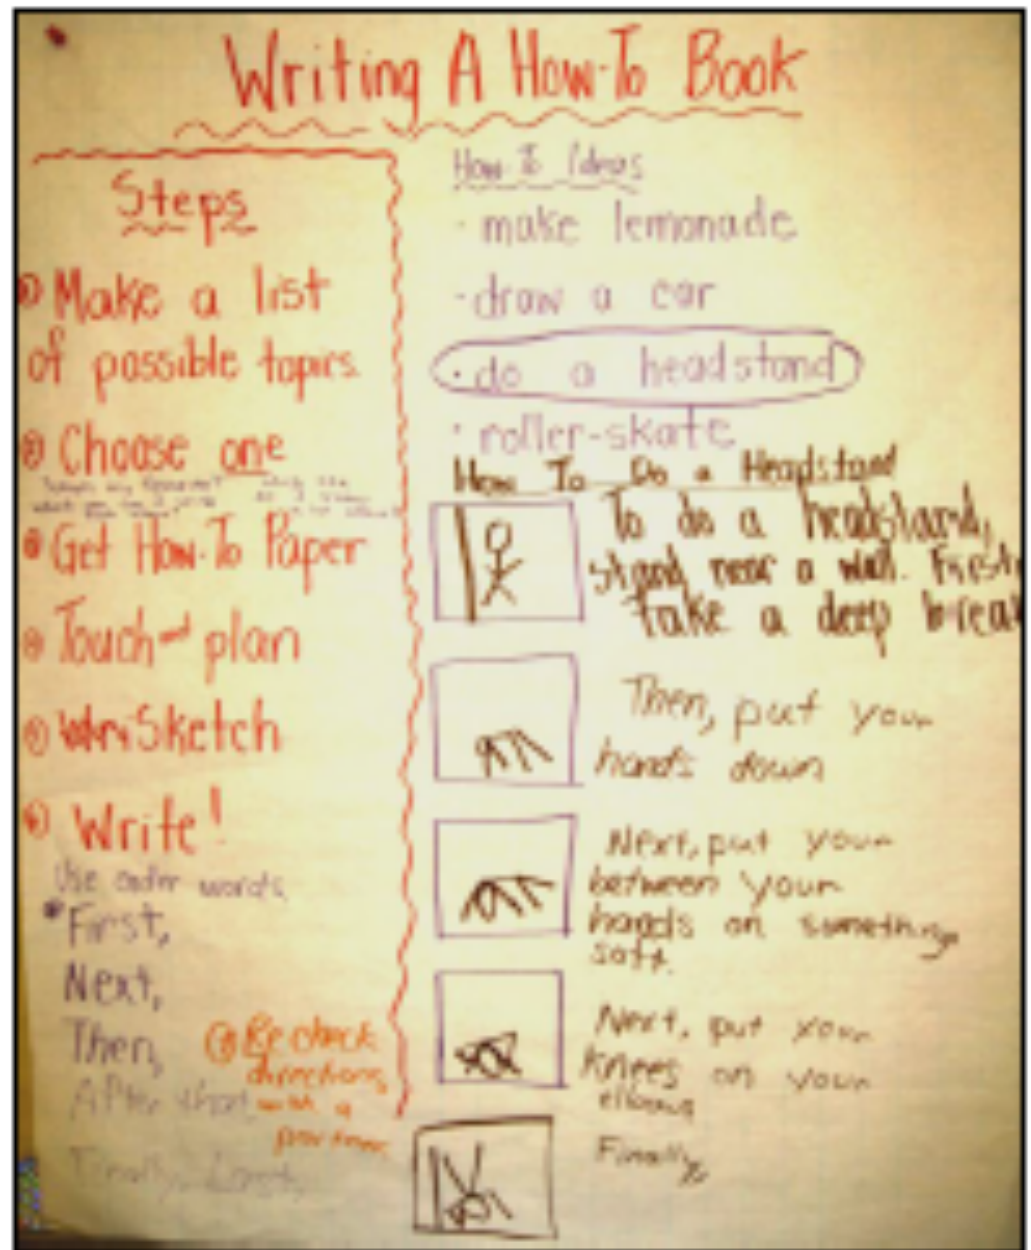 Writing A How-To Book
Steps
① Make a list
of possible topics
② Choose one
Get How-To Paper
Touch and plan
Sketch
⑥ Write!
Use order words
First,
Next,
Then,
After that
Finally, Last,
⑦ Re check
directions
with a
partner
How-To Ideas
· make lemonade
- draw a car
· do a headstand
· roller-skate
How To Do a Headstand
To do a headstand,
stand near a wall. First,
take a deep brea
Then, put your
hands down
Next, put your
between your
hands on something
soft.
Next, put your
knees on your
elbows
Finally,